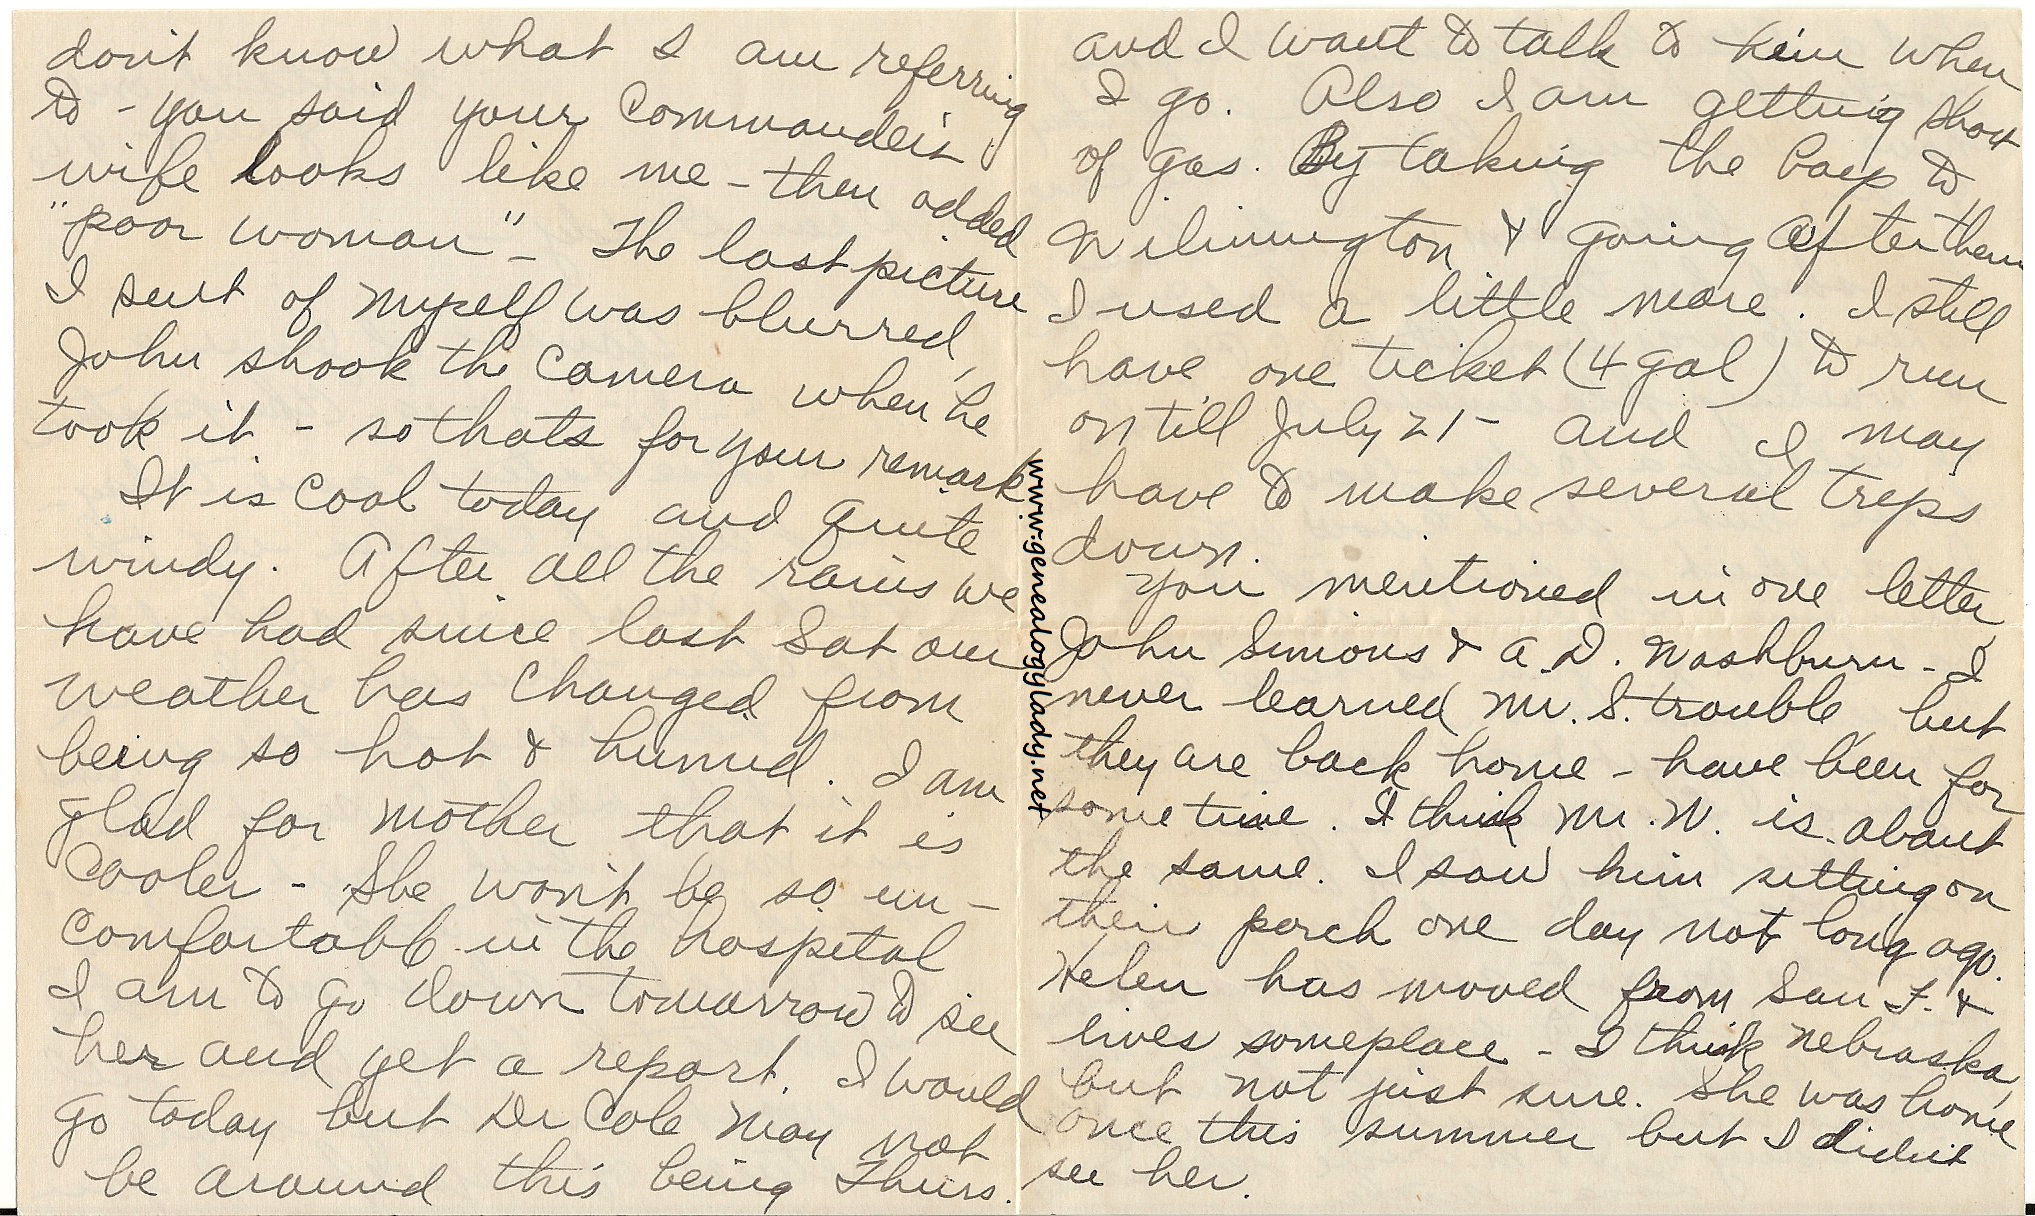 don't know what I am referring
to - you said your Commander's
wife looks like me - then added
"poor woman" - The last picture
I sent of myself was blurred,
John shook the camera when he
took it - so thats for your remark
It is cool today and quite
windy. After all the rains we
have had since last Sat our
weather has changed from
being so hot & humid. I am
glad for mother that it is
cooler - She won't be so un-
comfortable in the hospital
I am to go down tomorrow to see
her and get a report. I would
go today but Dr Cole may not
be around this being Thurs.
and I want to talk to him when
I go. Also I am getting short
of gas. By taking the boys to
Wilmington & going after them
I used a little more. I still
have one ticket (4 gal) to run
on till July 21 - and I may
have to make several trips
down.
You mentioned in one letter
John Simons & A. D. Washburn - I
never learned Mr. S. trouble but
they are back home - have been for
some time. I think Mr. W. is about
the same. I saw him sitting on
their porch one day not long ago.
Helen has moved from San F. &
lives someplace - I think Nebraska,
but not just sure. She was home
once this summer but I didn't
see her.
www.genealogylady.net